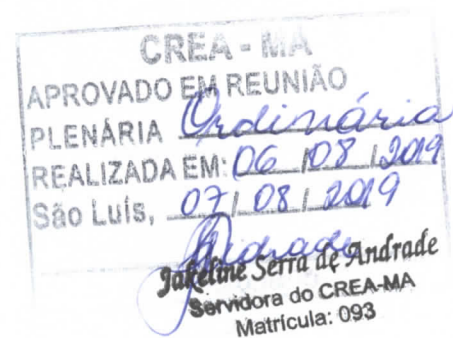 CREA - MA
APROVADO EM REUNIÃO
PLENÁRIA Ordinária
REALIZADA EM: 06 / 08 / 2019
São Luís, 07 / 08 / 2019
Andrade
Jakeline Serra de Andrade
Servidora do CREA-MA
Matrícula: 093